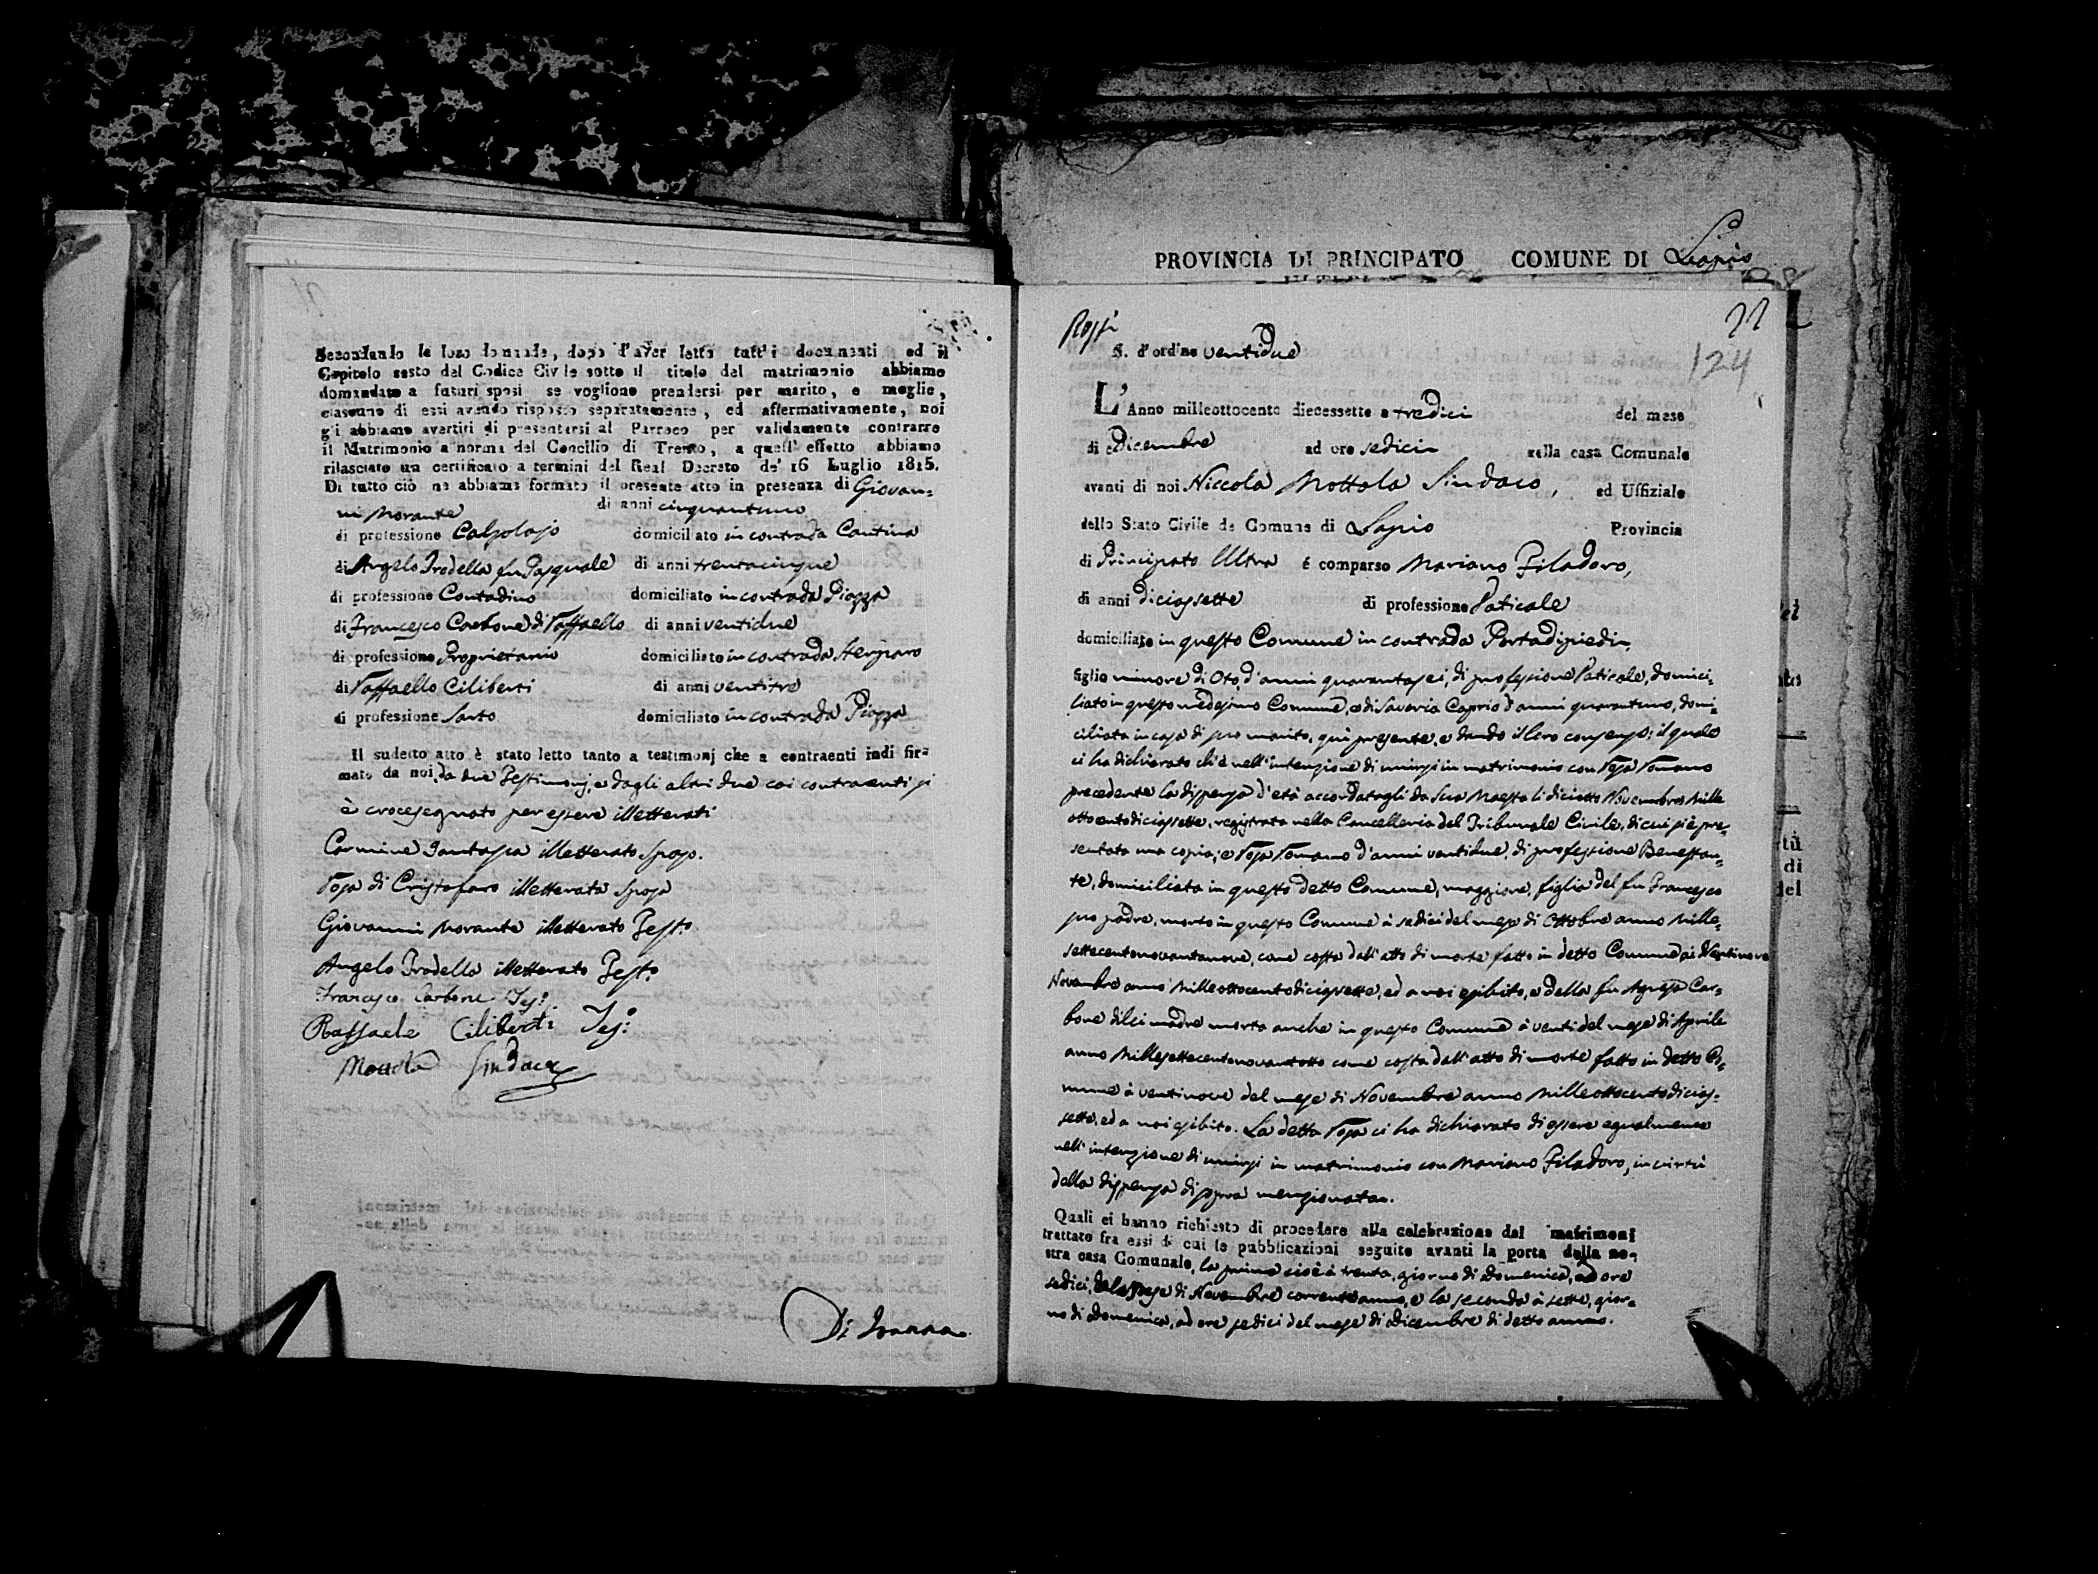 Secondando le loro domande, dopo d'aver letto tutt'i documenti ed il
Capitolo sesto del Codice Civile sotto il titolo del matrimonio abbiamo
domandato a futuri sposi se vogliono prendersi per marito, e moglie,
ciascuno di essi avendo risposto separatamente, ed affermativamente, noi
gli abbiamo avertiti di presentarsi al Parroco per validamente contrarre
il Matrimonio a norma del Concilio di Trento, a quell' effetto abbiamo
rilasciato un certificato a termini del Real Decreto de' 16 Luglio 1815.
Di tutto ciò ne abbiamo formato il presente atto in presenza di Giovan=
ni Morante di anni cinquantuno
di professione Calzolajo domiciliato in contrada Cantina
di Angelo Trodella fu Pasquale di anni trentacinque
di professione Contadino domiciliato in contrada Piazza
di Francesco Carbone di Raffaello di anni ventidue
di professione Proprietario domiciliato in contrada
di Raffaello Ciliberti di anni ventitre
di professione Sarto domiciliato in contrada Piazza
Il sudetto atto è stato letto tanto a testimonj che a contraenti indi fir=
mato da noi, da due Testimonj, e dagli altri due coi contraenti si
è crocesegnato per essere illetterati
Carmine Fantasia illetterato Sposo.
Rosa di Cristofaro illetterata Sposa
Giovanni Morante illetterato Testo
Angelo Trodella illetterato Testo
Francesco Carbone Tes:
Raffaele Ciliberti Tes:
Mottola Sindaco
Di Ioanna
PROVINCIA DI PRINCIPATO COMUNE DI Lapio
22
124
N. d'ordine ventidue
L'Anno milleottocento diecessette a tredici del mese
di Dicembre ad ore sedici nella casa Comunale
avanti di noi Niccola Mottola Sindaco, ed Uffiziale
dello Stato Civile de Comune di Lapio Provincia
di Principato Ultra é comparso Mariano Filadoro,
di anni diciassette di professione Vaticale
domiciliato in questo Comune in contrada Portadipiedi
figlio minore di Oto, d'anni quarantasei, di professione Vaticale, domici=
liato in questo medesimo Comune, e di Saveria Caprio d'anni quarantuno, domi=
ciliata in casa di suo marito, qui presente, e dando il loro consenso; il quale
ci ha dichiarato ch'è nell'intenzione di unirsi in matrimonio con Rosa Romano
precedente la dispensa d'età accordatagli da Sua Maestà li diciotto Novembre Mille
ottocentodiciassette, registrata nella Cancelleria del Tribunale Civile, di cui si è pre=
sentata una copia; e Rosa Romano d'anni ventidue, di professione Benestan=
te, domiciliata in questo detto Comune, maggiore, figlia del fu Francesco
suo padre, morto in questo Comune à sedici del mese di Ottobre anno Mille=
settecentonovantanove, come costa dall'atto di morte fatto in detto Comune à Ventinove
Novembre anno Milleottocentodiciassette, ed a noi esibito, e della fu Agnesa Car=
bone di lei madre morta anche in questo Comune à venti del mese di Aprile
anno Millesettecentonovantotto come costa dall'atto di morte fatto in detto Co=
mune à ventinove del mese di Novembre anno Milleottocentodicias=
sette, ed a noi esibito. La detta Rosa ci ha dichiarato di essere egualmente
nell'intenzione di unirsi in matrimonio con Mariano Filadoro, in virtù
della dispensa di sopra menzionata.
Quali ci hanno richiesto di procedere alla celebrazione del matrimoni
trattato fra essi di cui le pubblicazioni seguite avanti la porta della no=
stra casa Comunale, la prima cioè à trenta, giorno di Domenica, ad ore
sedici, del mese di Novembre corrente anno, e la seconda à sette, gior=
no di Domenica, ad ore sedici del mese di Dicembre di detto anno.